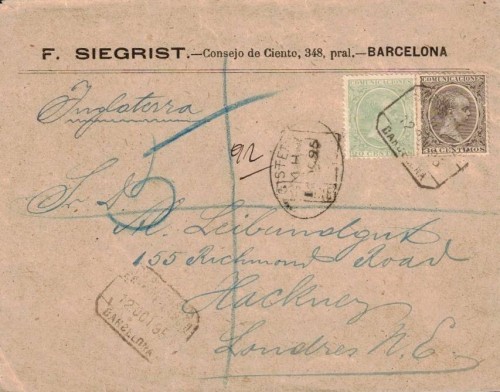 F. SIEGRIST.—Consejo de Ciento, 348, pral.—BARCELONA
COMUNICACIONES
COMUNICACIONES
CENTIMOS
Inglaterra
12
BARCELONA
92
95
Sr. D.
M. Leibundgut
155 Richmond Road
Hackney
Londres N. E.
12 OCT 95
BARCELONA